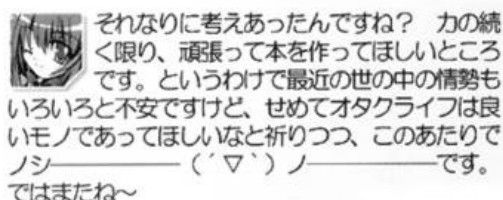 それなりに考えあったんですね？　力の続
く限り、頑張って本を作ってほしいところ
です。というわけで最近の世の中の情勢も
いろいろと不安ですけど、せめてオタクライフは良
いモノであってほしいなと祈りつつ、このあたりで
ノシ―――――（´▽｀）ノ―――――です。
ではまたね～